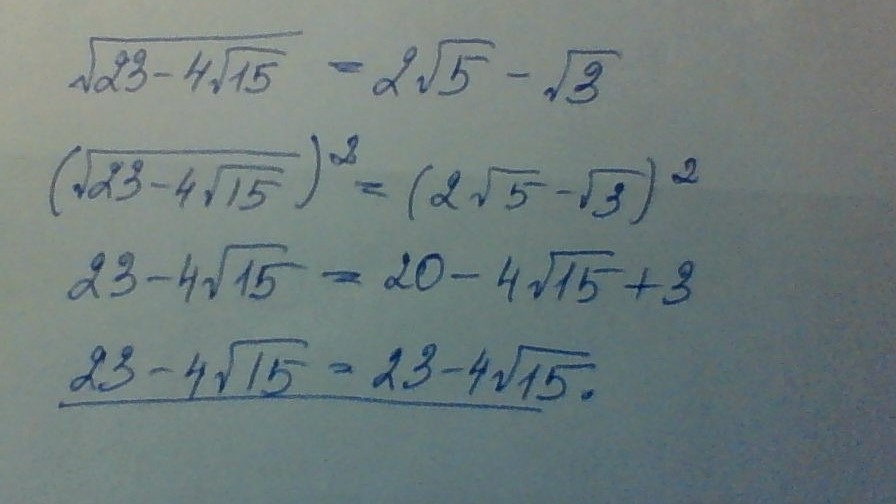 √(23 - 4√15) = 2√5 - √3
(√(23 - 4√15))² = (2√5 - √3)²
23 - 4√15 = 20 - 4√15 + 3
23 - 4√15 = 23 - 4√15.